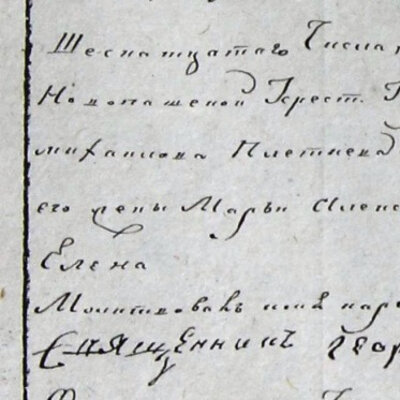 Шеснатцатаго Числа
Новопашеной Крест.
михаилова Плетнева
его жены Марьи Алекс
Елена
Молитвовалъ имя наро
Священникъ Геор